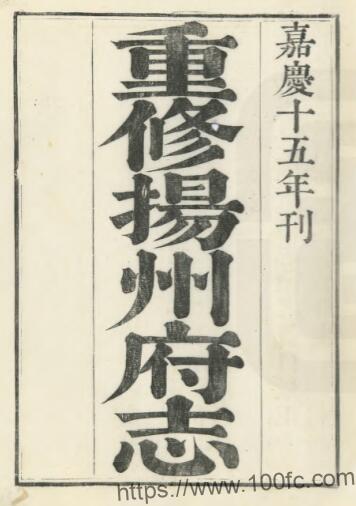 嘉慶十五年刊
重修揚州府志
https://www.100fc.com